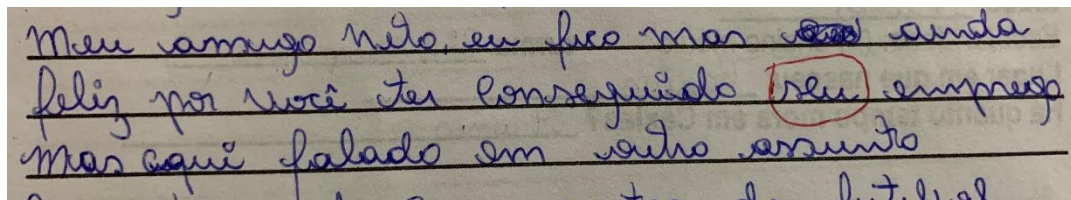 Meu amigo neto, eu fico mas ainda
feliz por você ter conseguido seu emprego
mas aqui falado em outro assunto
futebol